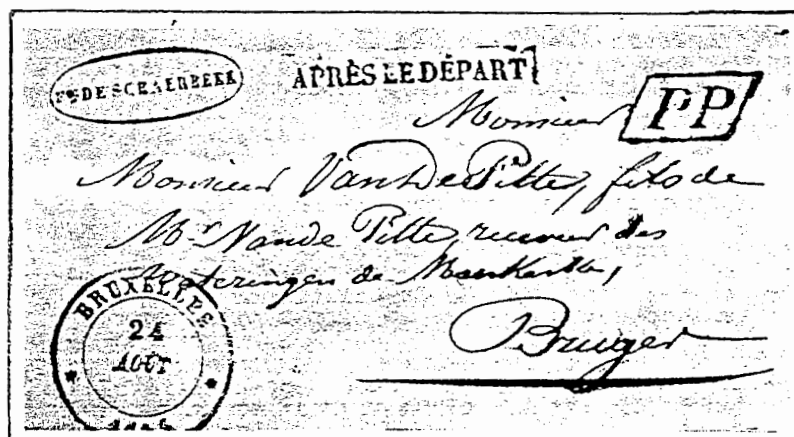 Fg DE SCHAERBEEK
APRÈS LE DÉPART
PP
Monsieur
Monsieur Van De Pitte, fils de
Mr. Van de Pitte, receveur des
Wateringen de
Bruges
BRUXELLES
24
AOÛT